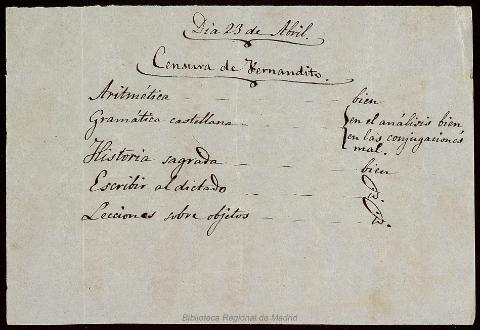 Dia 23 de Abril.
Censura de Fernandito.
Aritmética — — — bien
Gramática castellana — — — en el análisis bien
en las conjugaciones
mal.
Historia sagrada — — — bien
Escribir al dictado — — —
Lecciones sobre objetos — — —
Biblioteca Regional de Madrid